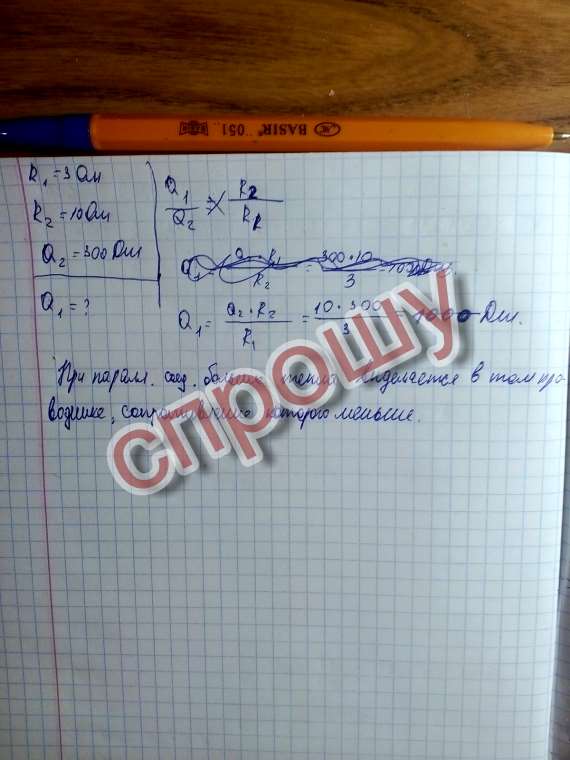 BASIR® 051
R₁ = 3 Ом
R₂ = 10 Ом
Q₂ = 300 Дж
Q₁ = ?
Q₁/Q₂ = R₂/R₁
Q₁ = Q₂ · R₂/R₁ = 10 · 300/3 = 1000 Дж.
При паралл. соед. больше тепла выделяется в том про
воднике, сопротивление которого меньше.
спрошу